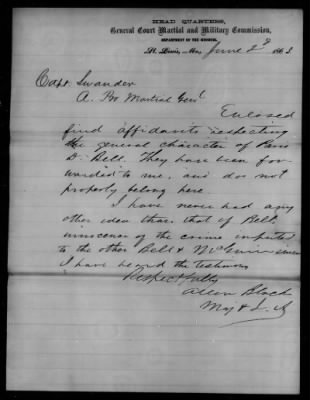 HEAD QUARTERS,
General Court Martial and Military Commission,
DEPARTMENT OF THE MISSOURI,
St. Louis, Mo., June 2d 1863.
Capt. Swander
A. Pro Martial Genl
Enclosed
find affidavits respecting
the general character of
D. Bell. They have been for-
warded to me, and do not
properly belong here
I have never had any
other idea than that of Bells
innocence of the crime imputed
to the other Bell & McGuin since
I have heard the testimony
Respectfully
Allen Black
Maj & J. A